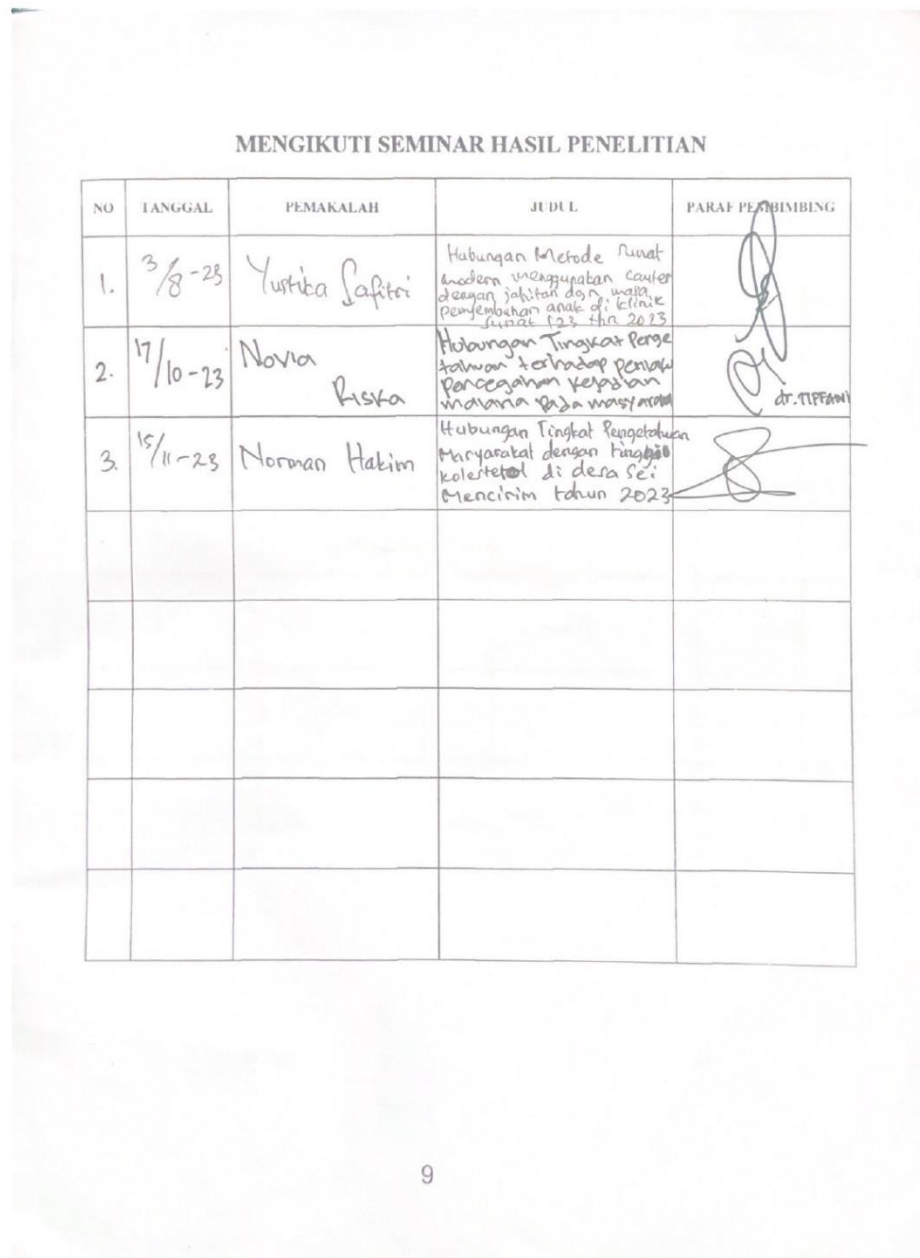 MENGIKUTI SEMINAR HASIL PENELITIAN
NO TANGGAL PEMAKALAH JUDUL PARAF PEMBIMBING
1. 3/8-23 Yustika Safitri
Hubungan Metode Sunat
modern menggunakan cauter
dengan jahitan dgn masa
penyembuhan anak di klinik
Sunat 123 thn 2023
2. 17/10-23 Novia
Riska
Hubungan Tingkat Penge
tahuan terhadap perilaku
pencegahan kejadian
malaria pada masyarakat
dr. TIFFANI
3. 15/11-23 Norman Hakim
Hubungan Tingkat Pengetahuan
Masyarakat dengan tinggi
kolesterol di desa Sei
Mencirim tahun 2023
9